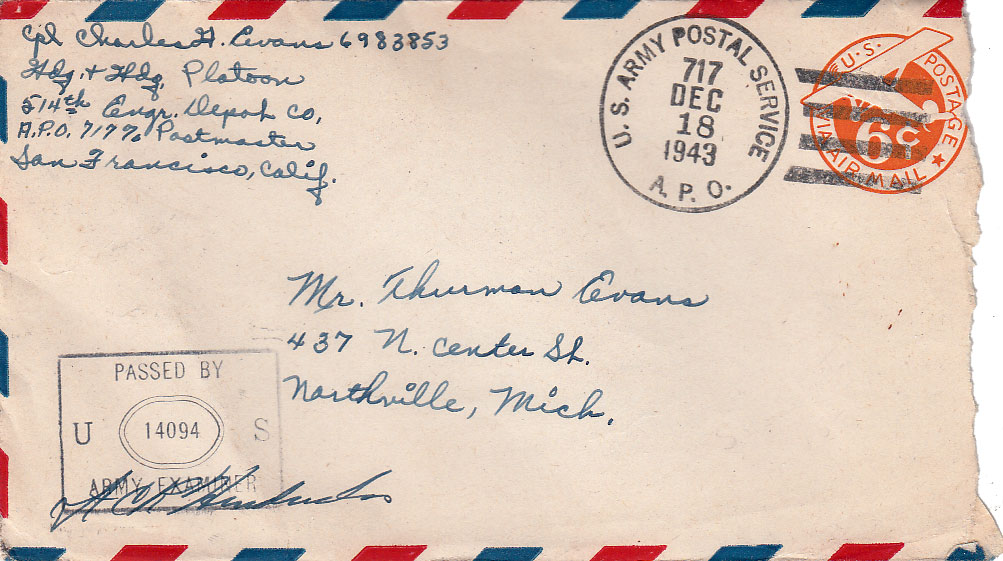 Cpl Charles H. Evans 6983853
Hdq. & Hdq. Platoon
514th Engr. Depot Co.
A.P.O. 717 % Postmaster
San Francisco, Calif.
U. S. ARMY POSTAL SERVICE
717
DEC
18
1943
A. P. O.
U.S. POSTAGE
6¢
VIA AIR MAIL
Mr. Thurman Evans
437 N. Center St.
Northville, Mich.
PASSED BY
U 14094 S
ARMY EXAMINER